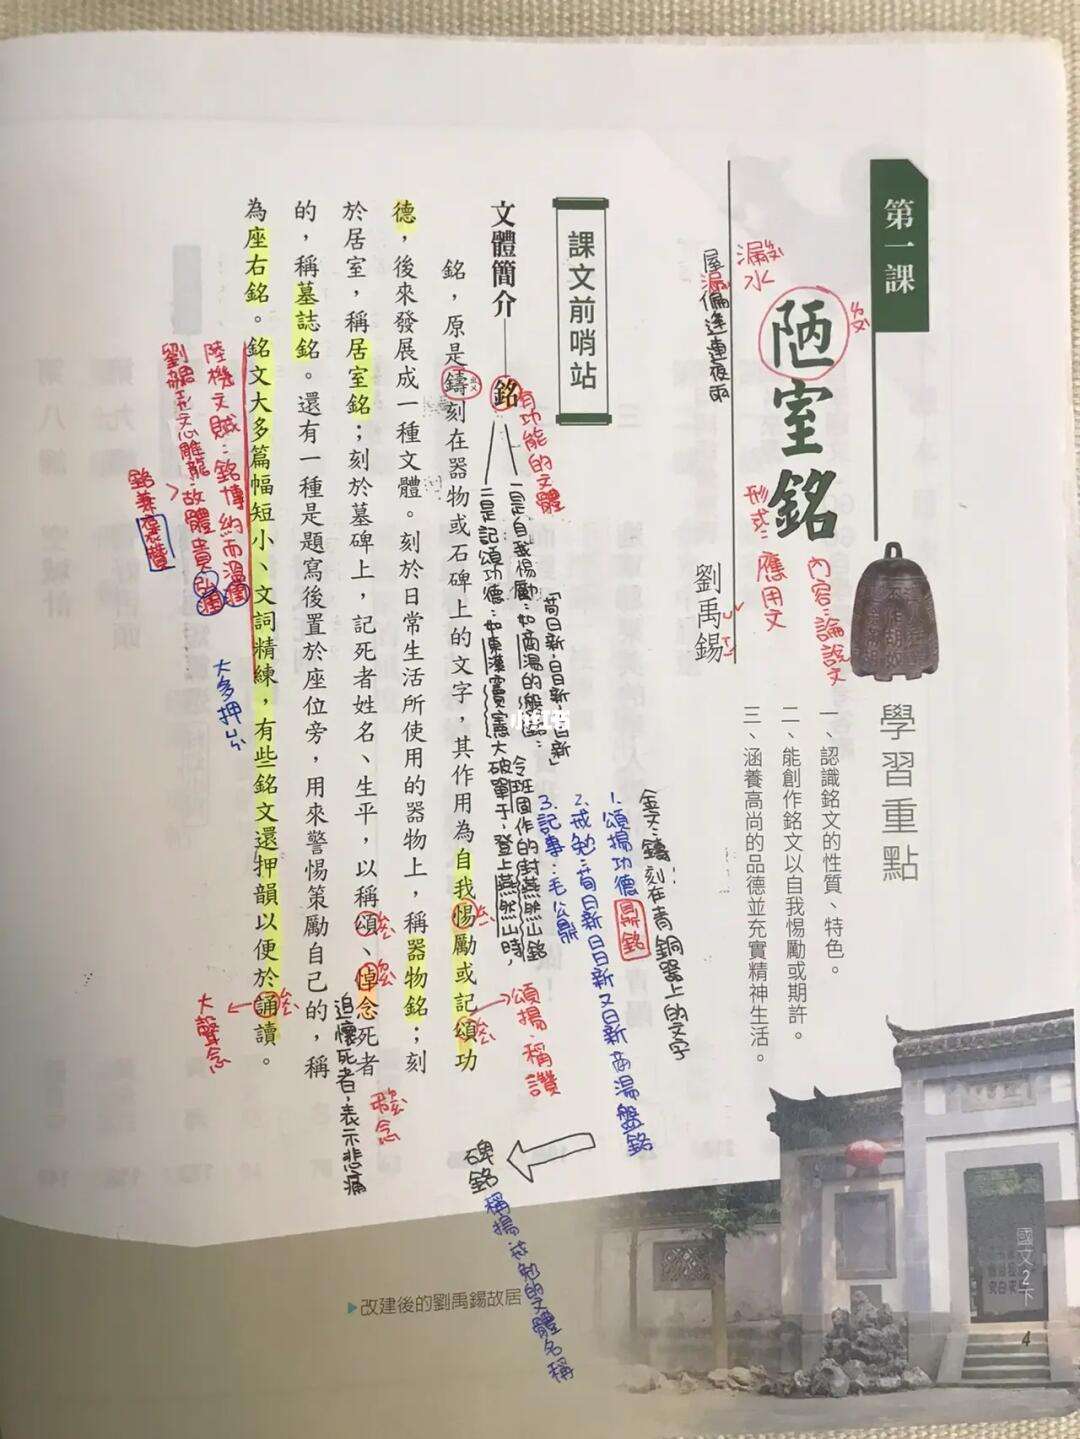 第一課
陋室銘
ㄌㄡˋ
漏ㄌㄡˋ水
屋漏偏逢連夜雨
內容：論說文
形式：應用文
劉禹錫
學習重點
一、認識銘文的性質、特色。
二、能創作銘文以自我惕勵或期許。
三、涵養高尚的品德並充實精神生活。
課文前哨站
文體簡介——銘
有功能的文體
一是自我惕勵：如商湯的盤銘：
「苟日新，日日新，又日新」
二是記頌功德：如東漢竇憲大破單于，登上燕然山時，
令班固作的封燕然山銘
金文：鑄刻在青銅器上的文字
1. 頌揚功德 鼎銘
2. 戒勉：苟日新日日新又日新 商湯盤銘
3. 記事：毛公鼎
碑銘
稱揚戒勉的文體名稱
銘，原是鑄刻在器物或石碑上的文字，其作用為自我惕勵或記頌功
德，後來發展成一種文體。刻於日常生活所使用的器物上，稱器物銘；刻
於居室，稱居室銘；刻於墓碑上，記死者姓名、生平，以稱頌、悼念死者
的，稱墓誌銘。還有一種是題寫後置於座位旁，用來警惕策勵自己的，稱
為座右銘。銘文大多篇幅短小、文詞精練，有些銘文還押韻以便於誦讀。
ㄓㄨˋ
頌揚 稱讚
追懷死者，表示悲痛
大聲念
大多押ㄣ
陸機文賦：銘博約而溫潤
劉勰文心雕龍：故體貴弘潤
銘兼褒讚
改建後的劉禹錫故居
國文2下
4
小红书